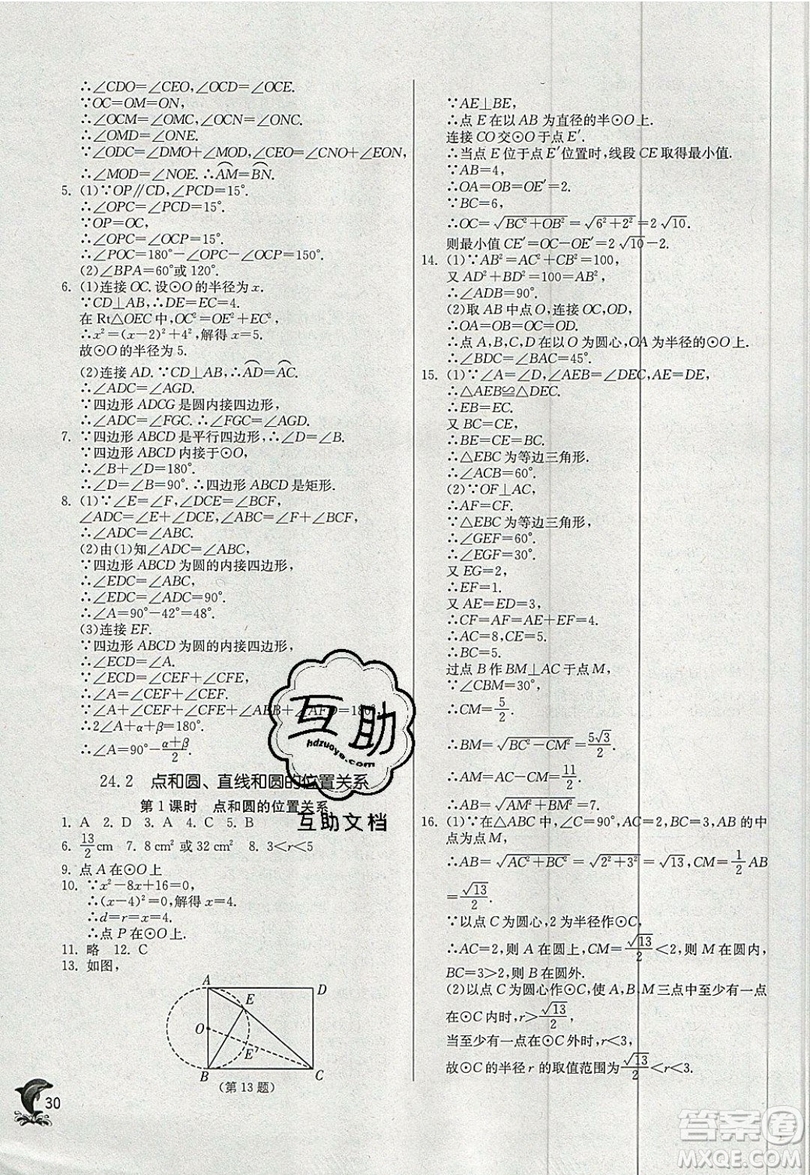 ∴∠CDO=∠CEO,∠OCD=∠OCE.
∵OC=OM=ON,
∴∠OCM=∠OMC,∠OCN=∠ONC.
∴∠OMD=∠ONE.
∵∠ODC=∠DMO+∠MOD,∠CEO=∠CNO+∠EON,
∴∠MOD=∠NOE. ∴AM=BN.
5. (1)∵OP∥CD,∠PCD=15°.
∴∠OPC=∠PCD=15°.
∵OP=OC,
∴∠OPC=∠OCP=15°.
∴∠POC=180°-∠OPC-∠OCP=150°.
(2)∠BPA=60°或120°.
6. (1)连接 OC. 设⊙O的半径为 x.
∵CD⊥AB,∴DE=EC=4.
在 Rt△OEC 中,OC²=OE²+EC²,
∴x²=(x-2)²+4²,解得 x=5.
故⊙O的半径为 5.
(2)连接 AD. ∵CD⊥AB,∴AD=AC.
∴∠ADC=∠AGD.
∵四边形 ADCG 是圆内接四边形,
∴∠ADC=∠FGC. ∴∠FGC=∠AGD.
7. ∵四边形 ABCD 是平行四边形,∴∠D=∠B.
∵四边形 ABCD 内接于⊙O,
∴∠B+∠D=180°.
∴∠D=∠B=90°. ∴四边形 ABCD 是矩形.
8. (1)∵∠E=∠F,∠DCE=∠BCF,
∠ADC=∠E+∠DCE,∠ABC=∠F+∠BCF,
∴∠ADC=∠ABC.
(2)由(1)知∠ADC=∠ABC,
∵四边形 ABCD 为圆的内接四边形,
∴∠EDC=∠ABC.
∴∠EDC=∠ADC=90°.
∴∠A=90°-42°=48°.
(3)连接 EF.
∵四边形 ABCD 为圆的内接四边形,
∴∠ECD=∠A.
∵∠ECD=∠CEF+∠CFE,
∴∠A=∠CEF+∠CFE.
∵∠A+∠CEF+∠CFE+∠AEB+∠AFD=180°,
∴2∠A+α+β=180°.
∴∠A=90°-(α+β)/2.
24.2 点和圆、直线和圆的位置关系
第 1 课时 点和圆的位置关系
1. A 2. D 3. A 4. C 5. B
6. 13/2 cm 7. 8 cm² 或 32 cm² 8. 3<r<5
9. 点 A 在⊙O上
10. ∵x²-8x+16=0,
∴(x-4)²=0,解得 x=4.
∴d=r=4.
∴点 P 在⊙O上.
11. 略 12. C
13. 如图,
A D
E
O
E′
B C
(第 13 题)
30
∵AE⊥BE,
∴点 E 在以 AB 为直径的半⊙O上.
连接 CO 交⊙O于点 E′.
∴当点 E 位于点 E′位置时,线段 CE 取得最小值.
∵AB=4,
∴OA=OB=OE′=2.
∵BC=6,
∴OC=√(BC²+OB²)=√(6²+2²)=2√10.
则最小值 CE′=OC-OE′=2√10-2.
14. (1)∵AB²=AC²+CB²=100,
又 AD²+BD²=100=AB²,
∴∠ADB=90°.
(2)取 AB 中点 O,连接 OC,OD,
∴OA=OB=OD=OC.
∴点 A,B,C,D 在以 O 为圆心,OA 为半径的圆上.
∴∠BDC=∠BAC=45°.
15. (1)∵∠A=∠D,∠AEB=∠DEC,AE=DE,
∴△AEB≌△DEC.
∴EB=EC.
又 BC=CE,
∴BE=CE=BC.
∴△EBC 为等边三角形.
∴∠ACB=60°.
(2)∵OF⊥AC,
∴AF=CF.
∵△EBC 为等边三角形,
∴∠GEF=60°.
∴∠EGF=30°.
又 EG=2,
∴EF=1.
又 AE=ED=3,
∴CF=AF=AE+EF=4.
∴AC=8,EC=5.
∴BC=5.
过点 B 作 BM⊥AC 于点 M,
∵∠CBM=30°,
∴CM=5/2.
∴BM=√(BC²-CM²)=5√3/2.
∴AM=AC-CM=11/2.
∴AB=√(AM²+BM²)=7.
16. (1)∵∠C=90°,AC=2,BC=3,AB 的中
点为点 M,
∴AB=√(AC²+BC²)=√(2²+3²)=√13,CM=1/2 AB
=√13/2.
∵以点 C 为圆心,2 为半径作⊙C,
∴AC=2,则 A 在圆上,CM=√13/2<2,则 M 在圆内,
BC=3>2,则 B 在圆外.
(2)以点 C 为圆心作⊙C,使 A,B,M 三点中至少有一点
在⊙C内时,r>√13/2,
当至少有一点在⊙C外时,r<3,
故⊙C的半径 r 的取值范围为 √13/2<r<3.
互助
hdzuoye.com
互助文档
答案圈
MXQE.COM